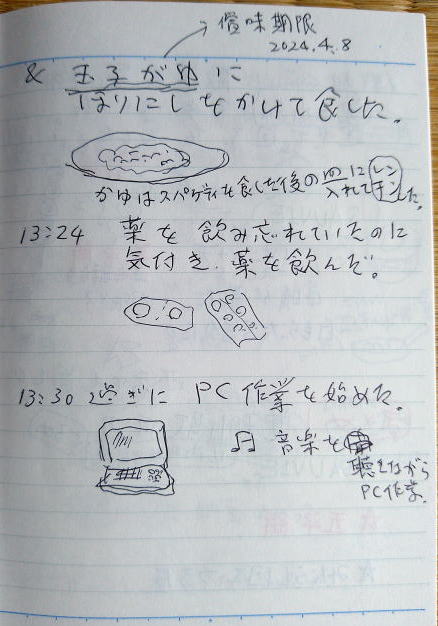 賞味期限
2024.4.8
& 玉子がゆに
ほりにしをかけて食した。
かゆはスパゲティを食した後の皿に
入れてレンチンした。
13:24 薬を飲み忘れていたのに
気付き、薬を飲んだ。
13:30 過ぎに PC作業を始めた。
♫ 音楽を
聴きながら
PC作業。